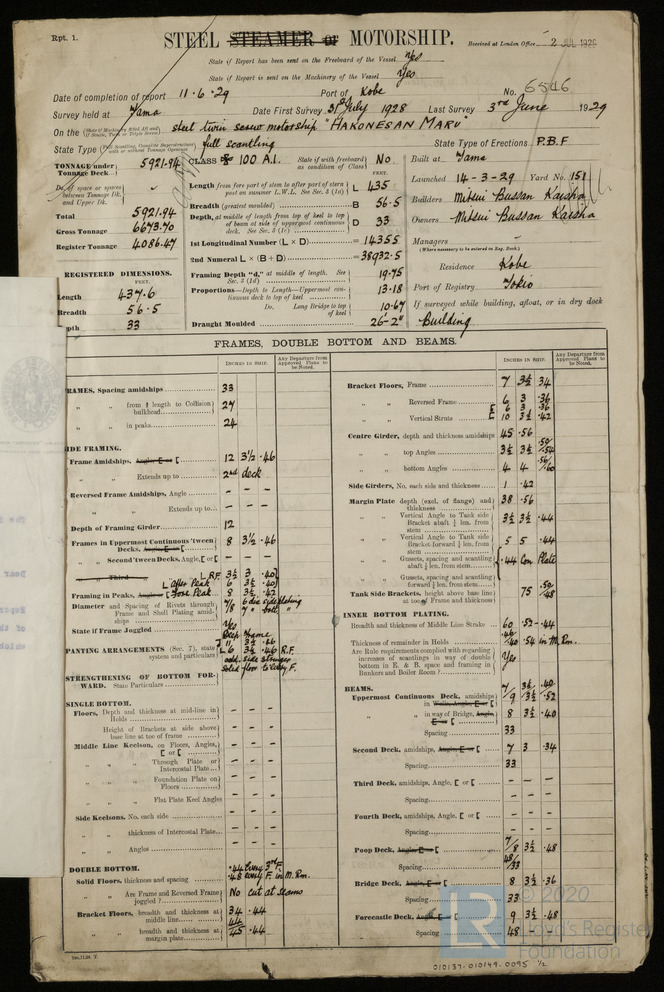 Rpt. 1.
STEEL STEAMER or MOTORSHIP.
Received at London Office 2 JUL 1929
State if Report has been sent on the Freeboard of the Vessel Yes
State if Report is sent on the Machinery of the Vessel Yes
Date of completion of report 11.6.29 Port of Kobe No. 6546
Survey held at Tama Date First Survey 3rd July 1928 Last Survey 3rd June 1929
On the steel twin screw motorship "HAKONESAN MARU"
State Type full scantling State Type of Erections P.B.F
TONNAGE under Tonnage Deck 5921.94
CLASS 100 A.1. State if with freeboard as condition of Class No
Built at Tama
Launched 14-3-29 Yard No. 151
Builders Mitsui Bussan Kaisha
Owners Mitsui Bussan Kaisha
Managers
(Where necessary to be entered in Reg. Book)
Residence Kobe
Port of Registry Tokio
If surveyed while building, afloat, or in dry dock
Building
Total 5921.94
Gross Tonnage 6673.70
Register Tonnage 4086.47
REGISTERED DIMENSIONS.
FEET.
Length 437.6
Breadth 56.5
Depth 33
Length from fore part of stem to after part of stern post on summer L.W.L. See Sec. 3 (1a) L 435
Breadth (greatest moulded) B 56.5
Depth, at middle of length from top of keel to top of beam at side of uppermost continuous deck. See Sec. 3 (1c) D 33
1st Longitudinal Number (L × D) = 14355
2nd Numeral L × (B + D) = 38932.5
Framing Depth "d," at middle of length. See Sec. 3 (1d) 19.75
Proportions—Depth to Length—Uppermost continuous deck to top of keel 13.18
Do. Long Bridge to top of keel 10.67
Draught Moulded 26'-2"
FRAMES, DOUBLE BOTTOM AND BEAMS.
INCHES IN SHIP.
Any Departure from Approved Plans to be Noted.
FRAMES, Spacing amidships 33
" " from ⅕ length to Collision bulkhead 27
" " in peaks 24
SIDE FRAMING.
Frame Amidships, Angle, E or [ 12 3½ .46
" " Extends up to 2nd deck
Reversed Frame Amidships, Angle - - -
" " Extends up to - - -
Depth of Framing Girder 12
Frames in Uppermost Continuous 'tween Decks, Angle, E or [ 8 3½ .46
" Second 'tween Decks, Angle, [ or [ - - -
" Third " L.R.F. 3½ 3 .40
Framing in Peaks, Angle, E or [ L after Peak 6 3½ .40
Fore Peak 8 3½ .42
Diameter and Spacing of Rivets through Frame and Shell Plating amidships
State if Frame Joggled Yes
PANTING ARRANGEMENTS (Sec. 7), state system and particulars
STRENGTHENING OF BOTTOM FORWARD. State Particulars
SINGLE BOTTOM.
Floors, Depth and thickness at mid-line in Holds - - -
Height of Brackets at side above base line at toe of frame - - -
Middle Line Keelson, on Floors, Angles, [ or [ - - -
" " Through Plate or Intercostal Plate - - -
" " Foundation Plate on Floors - - -
" " Flat Plate Keel Angles - - -
Side Keelsons, No. each side - - -
" " thickness of Intercostal Plate - - -
" " Angles - - -
DOUBLE BOTTOM.
Solid Floors, thickness and spacing .44 every 3rd F. .48 every F. in M. Rm.
" " Are Frame and Reversed Frame joggled? No cut at seams
Bracket Floors, breadth and thickness at middle line 34 .44
" " breadth and thickness at margin plate 45 .44
Bracket Floors, Frame 7 3½ .34
" " Reversed Frame 6 3 .36
" " Vertical Struts 10 3½ .42
Centre Girder, depth and thickness amidships 45 .56
" " top Angles 3½ 3½ .50/.54
" " bottom Angles 4 4 .56/.60
Side Girders, No. each side and thickness 1 .42
Margin Plate depth (excl. of flange) and thickness 38 .56
" " Vertical Angle to Tank side Bracket abaft ¼ len. from stem 3½ 3½ .44
" " Vertical Angle to Tank side Bracket forward ¼ len. from stem 5 5 .44
" " Gussets, spacing and scantling abaft ¼ len. from stem .44 Con Plate
" " Gussets, spacing and scantling forward ¼ len. from stem
Tank Side Brackets, height above base line at toe of Frame and thickness 75 .50/.48
INNER BOTTOM PLATING.
Breadth and thickness of Middle Line Strake 60 .52-.44
Thickness of remainder in Holds .46/.40 .54 in M. Rm.
Are Rule requirements complied with regarding increases of scantlings in way of double bottom in E. & B. space and framing in Bunkers and Boiler Room? Yes
BEAMS.
Uppermost Continuous Deck, amidships in Wells, Angle, E or [ 7/9 3½/3½ .40/.52
" " in way of Bridge, Angle, E or [ 8 3½ .40
Spacing 33
Second Deck, amidships, Angle, E or [ 7 3 .34
Spacing 33
Third Deck, amidships, Angle, [ or [ - - -
Spacing -
Fourth Deck, amidships, Angle, [ or [ - - -
Spacing -
Poop Deck, Angle, E or [ 7/8 3½ .48
Spacing 48/33
Bridge Deck, Angle, E or [ 8 3½ .36
Spacing 33
Forecastle Deck, Angle, E or [ 9 3½ .48
Spacing 48
© 2020
LR
Lloyd's Register
Foundation
010137-010149-0095 ½